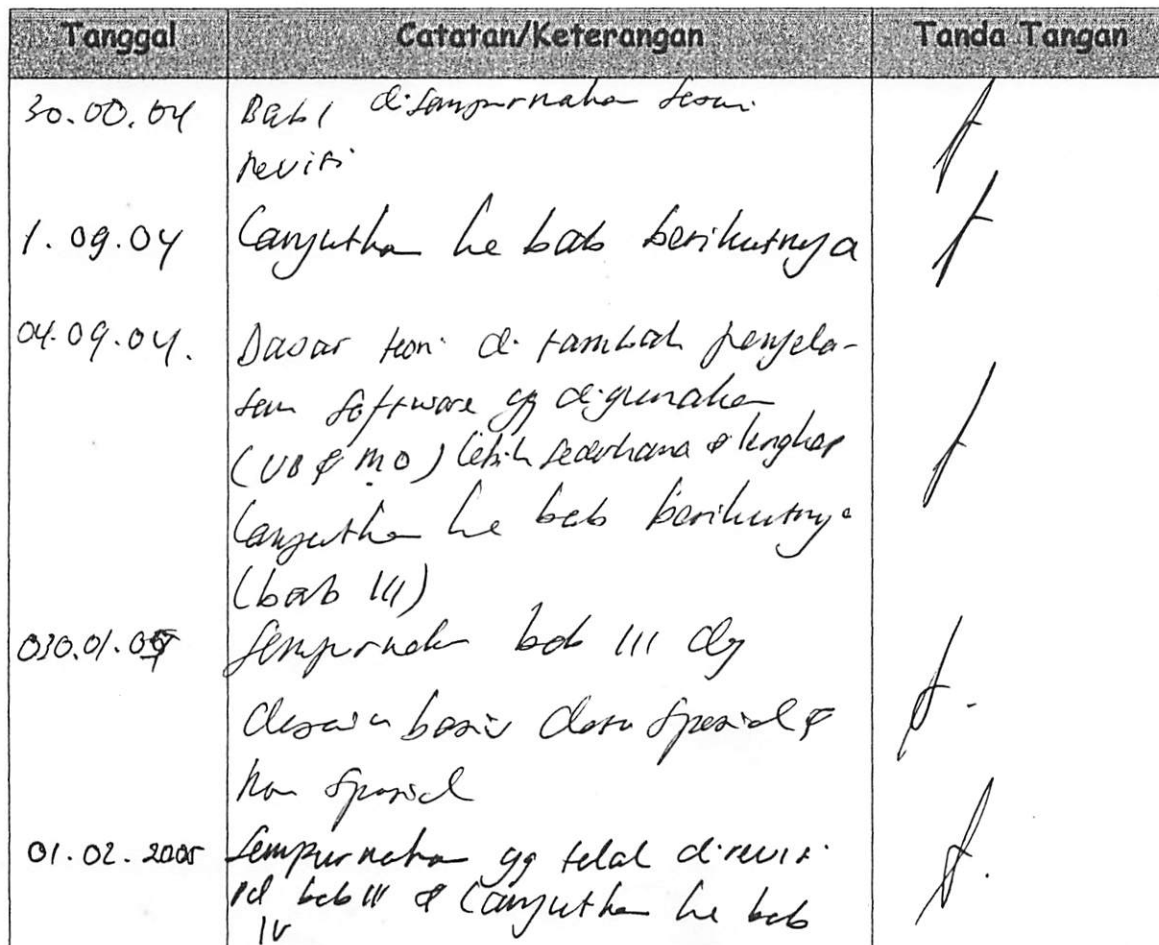 Tanggal Catatan/Keterangan Tanda Tangan
30.08.04 Bab I disempurnakan sesuai
revisi
1.09.04 Lanjutkan ke bab berikutnya
04.09.04. Dasar teori di tambah penjela-
san software yg digunakan
(VB & MO) lebih sederhana & lengkap
Lanjutkan ke bab berikutnya
(bab III)
030.01.05 Sempurnakan bab III dg
desain basis data spasial &
non spasial
01.02.2005 Sempurnakan yg telah direvisi
pd bab III & Lanjutkan ke bab
IV